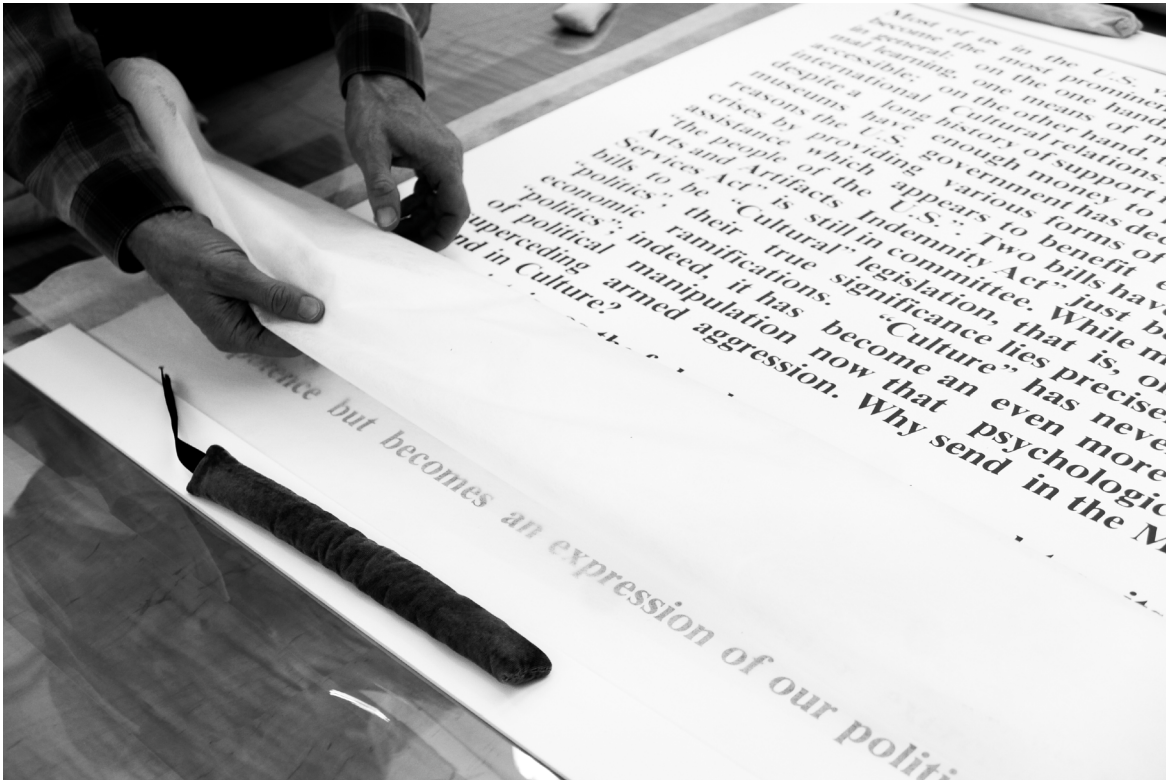 Most of us in the U.S.
become the most
in general: on the one hand
mal learning, one means of
accessible; on the other hand,
international Cultural relations.
despite a long history of support
museums have enough money to
reasons the U.S. government has
crises by providing various forms of
assistance which appears to benefit
"the people of the U.S." Two bills have
Arts and Artifacts Indemnity Act" just
Services Act" is still in committee. While
bills to be "Cultural" legislation, that is,
"politics", their true significance lies
economic ramifications. "Culture" has
"politics"; indeed, it has become an even more
of political manipulation now that
uperceding armed aggression. Why send in the
nd in Culture?
but becomes an expression of our politi